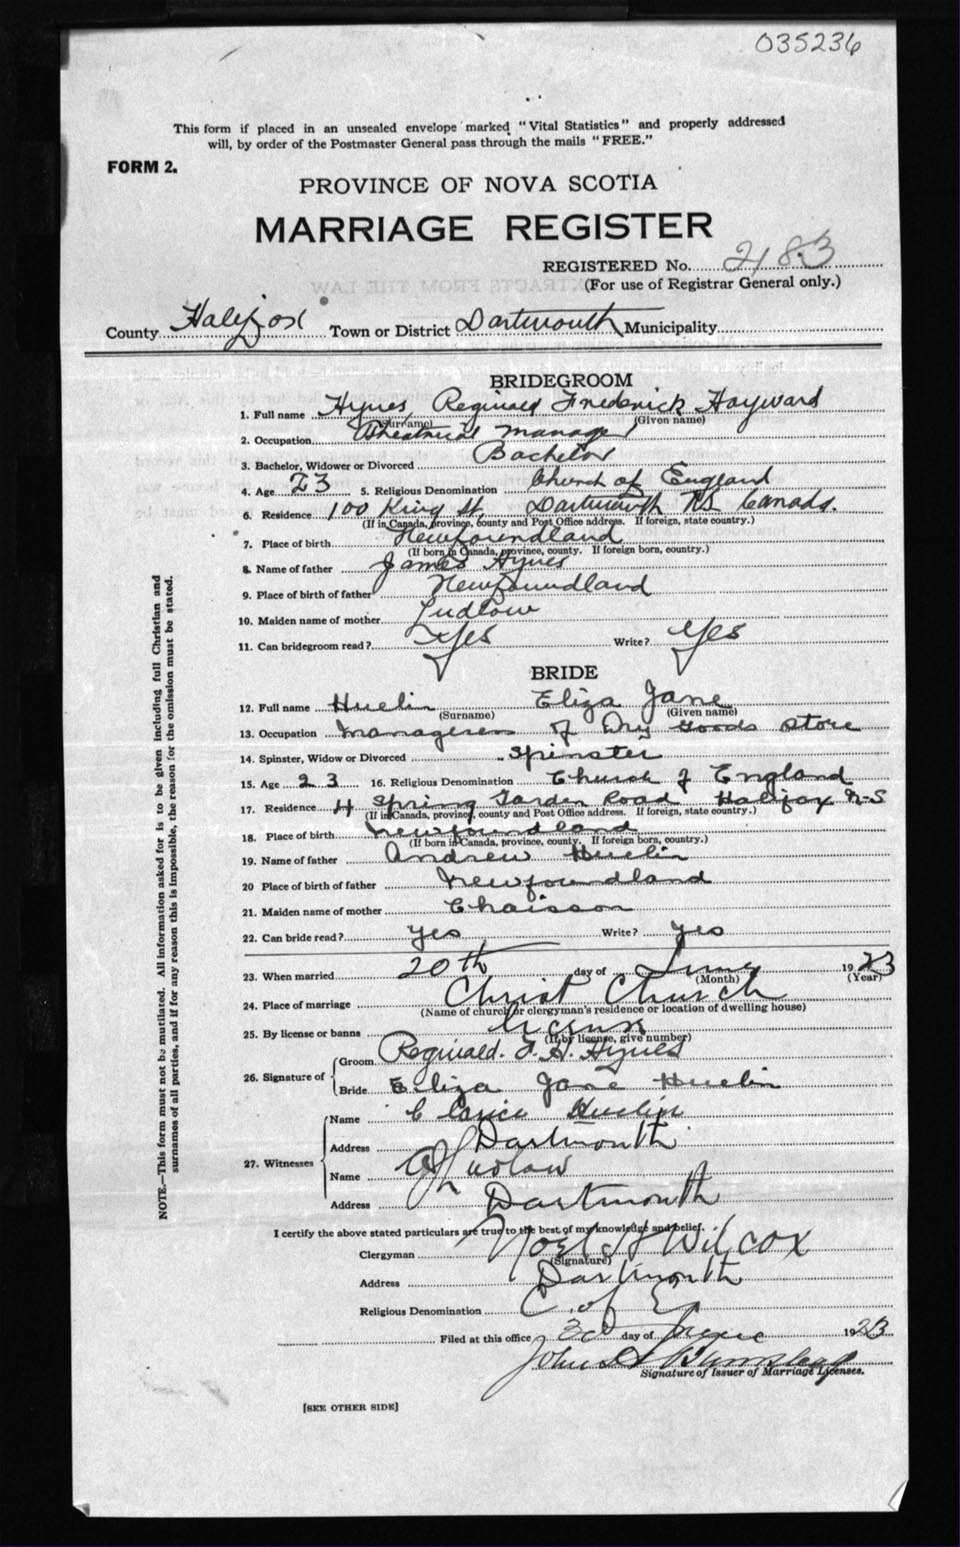 035236
This form if placed in an unsealed envelope marked "Vital Statistics" and properly addressed
will, by order of the Postmaster General pass through the mails "FREE."
FORM 2.
PROVINCE OF NOVA SCOTIA
MARRIAGE REGISTER
REGISTERED No. 2183
(For use of Registrar General only.)
County Halifax Town or District Dartmouth Municipality
BRIDEGROOM
1. Full name Hynes, Reginald Frederick Hayward
(Surname) (Given name)
2. Occupation Theatrical Manager
3. Bachelor, Widower or Divorced Bachelor
4. Age 23 5. Religious Denomination Church of England
6. Residence 100 King St, Dartmouth NS Canada.
(If in Canada, province, county and Post Office address. If foreign, state country.)
7. Place of birth Newfoundland
(If born in Canada, province, county. If foreign born, country.)
8. Name of father James Hynes
9. Place of birth of father Newfoundland
10. Maiden name of mother Ludlow
11. Can bridegroom read? Yes Write? Yes
BRIDE
12. Full name Huelin Eliza Jane
(Surname) (Given name)
13. Occupation Manageress of Dry Goods Store
14. Spinster, Widow or Divorced Spinster
15. Age 23 16. Religious Denomination Church of England
17. Residence 4 Spring Garden Road Halifax N-S
(If in Canada, province, county and Post Office address. If foreign, state country.)
18. Place of birth Newfoundland
(If born in Canada, province, county. If foreign born, country.)
19. Name of father Andrew Huelin
20 Place of birth of father Newfoundland
21. Maiden name of mother Chaisson
22. Can bride read? yes Write? yes
23. When married 20th day of June 1923
(Month) (Year)
24. Place of marriage Christ Church
(Name of church or clergyman's residence or location of dwelling house)
25. By license or banns License
(If by license, give number)
26. Signature of
Groom Reginald. F. H. Hynes
Bride Eliza Jane Huelin
27. Witnesses
Name Clarice Huelin
Address Dartmouth
Name Ludlow
Address Dartmouth
I certify the above stated particulars are true to the best of my knowledge and belief.
Clergyman Noel H Wilcox
(Signature)
Address Dartmouth
Religious Denomination C. of E.
Filed at this office 30 day of June 1923
John
Signature of Issuer of Marriage Licenses.
[SEE OTHER SIDE]
NOTE.—This form must not be mutilated. All information asked for is to be given including full Christian and
surnames of all parties, and if for any reason this is impossible, the reason for the omission must be stated.